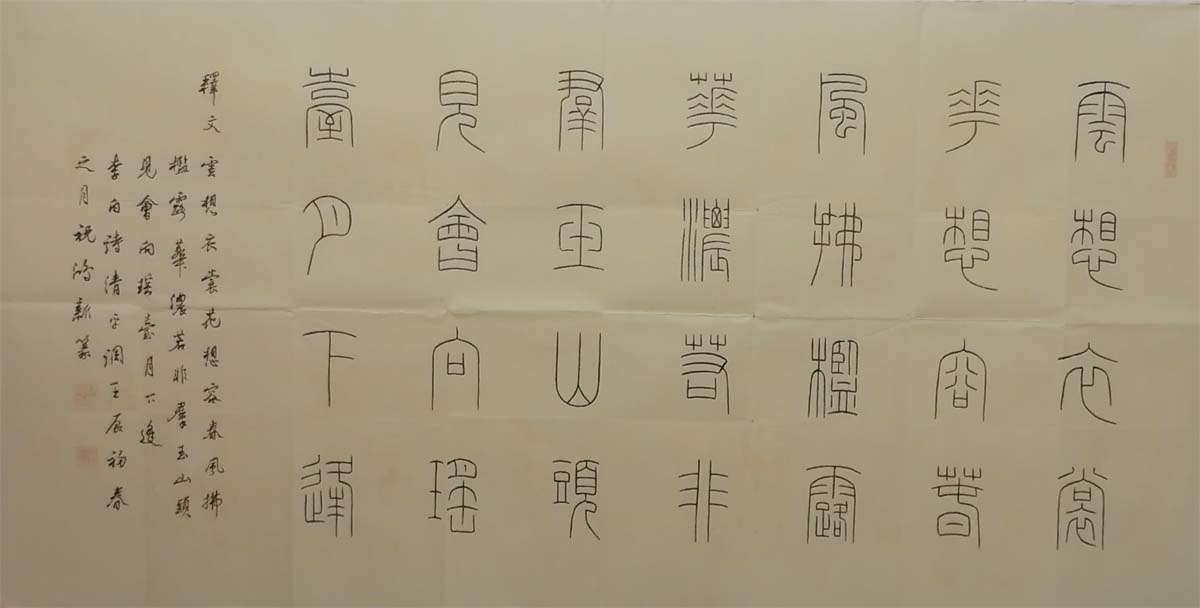 雲想衣裳
花想容春
風拂檻露
華濃若非
羣玉山頭
見會向瑤
臺月下逢
釋文 雲想衣裳花想容春風拂
檻露華濃若非羣玉山頭
見會向瑤臺月下逢
李白詩清平調壬辰初春
之月祝鴻新篆